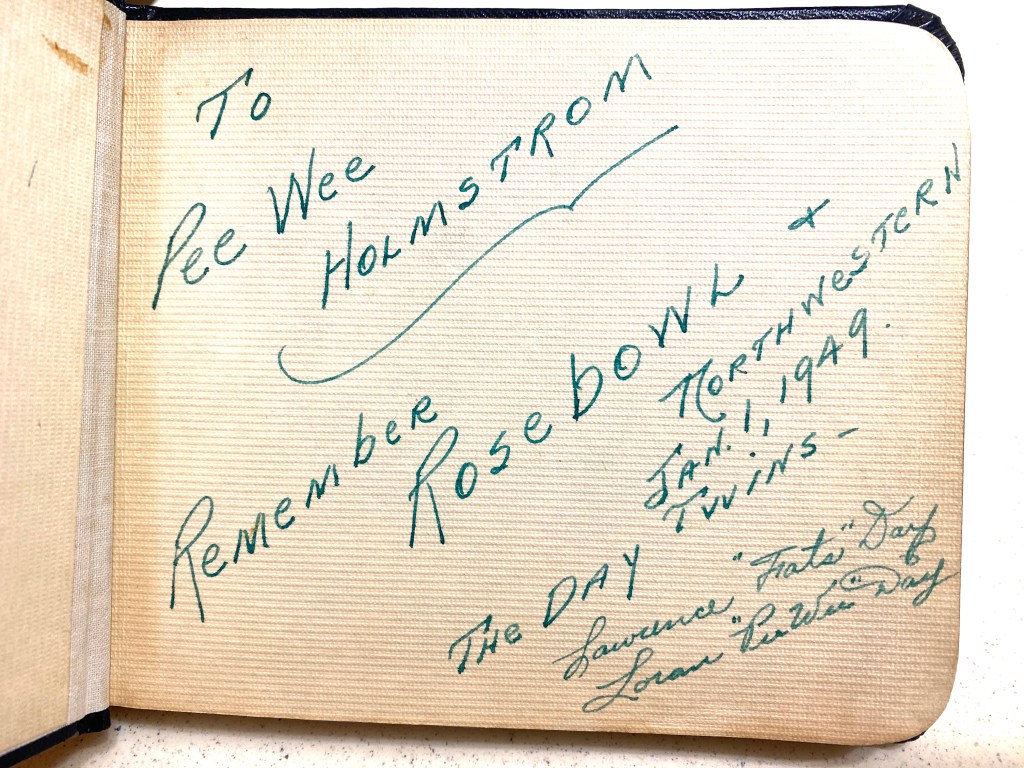 To
Pee Wee
HOLMSTROM
Remember
Rose bowl +
NORTHWESTERN
JAN. 1, 1949.
THE DAY TWINS -
Lawrence "Fats" Day
Loran "Pee Wee" Day